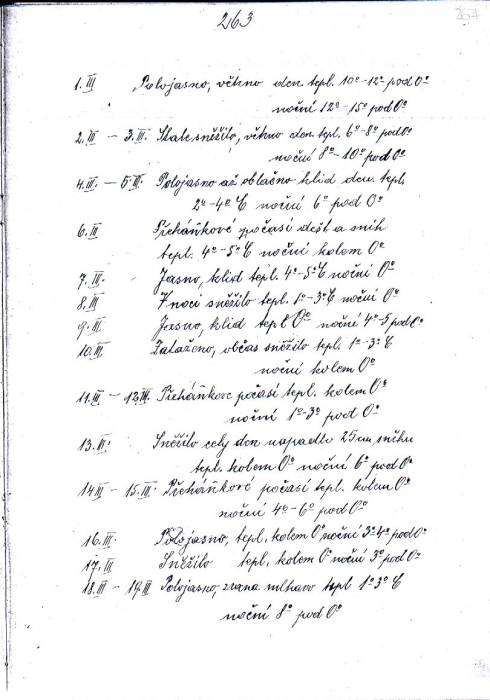 263
267
1. III Polojasno, větrno den. tepl. 10°-12° pod 0°
noční 12°-15° pod 0°
2. III - 3. III. Stale sněžilo, větrno den. tepl. 6°-8° pod 0°
noční 8°-10° pod 0°
4. III. - 5 III. Polojasno až oblačno klid den. tepl.
2°-4° C noční 6° pod 0°
6. III Přeháňkové počasí dešť a sníh
tepl. 4°-5° C noční kolem 0°
7. III. Jasno, klid tepl. 4°-5° C noční 0°
8. III V noci sněžilo tepl. 1°-3° C noční 0°
9. III Jasno, klid tepl 0° noční 4°-5 pod 0°
10. III. Zataženo, občas sněžilo tepl. 1°-3° C
noční kolem 0°
11. III - 12. III. Přeháňkove počasí tepl. kolem 0°
noční 1°-3° pod 0°
13. III. Sněžilo celý den napadlo 25 cm, sněhu
tepl. kolem 0° noční 6° pod 0°
14 III - 15. III. Přeháňkové počasí tepl. kolem 0°
noční 4°-6° pod 0°
16. III. Polojasno, tepl. kolem 0° noční 3°4° pod 0°
17. III Sněžilo tepl. kolem 0° noční 3° pod 0°
18. III - 19. III Polojasno, zrana mlhavo tepl 1°3° C
noční 8° pod 0°